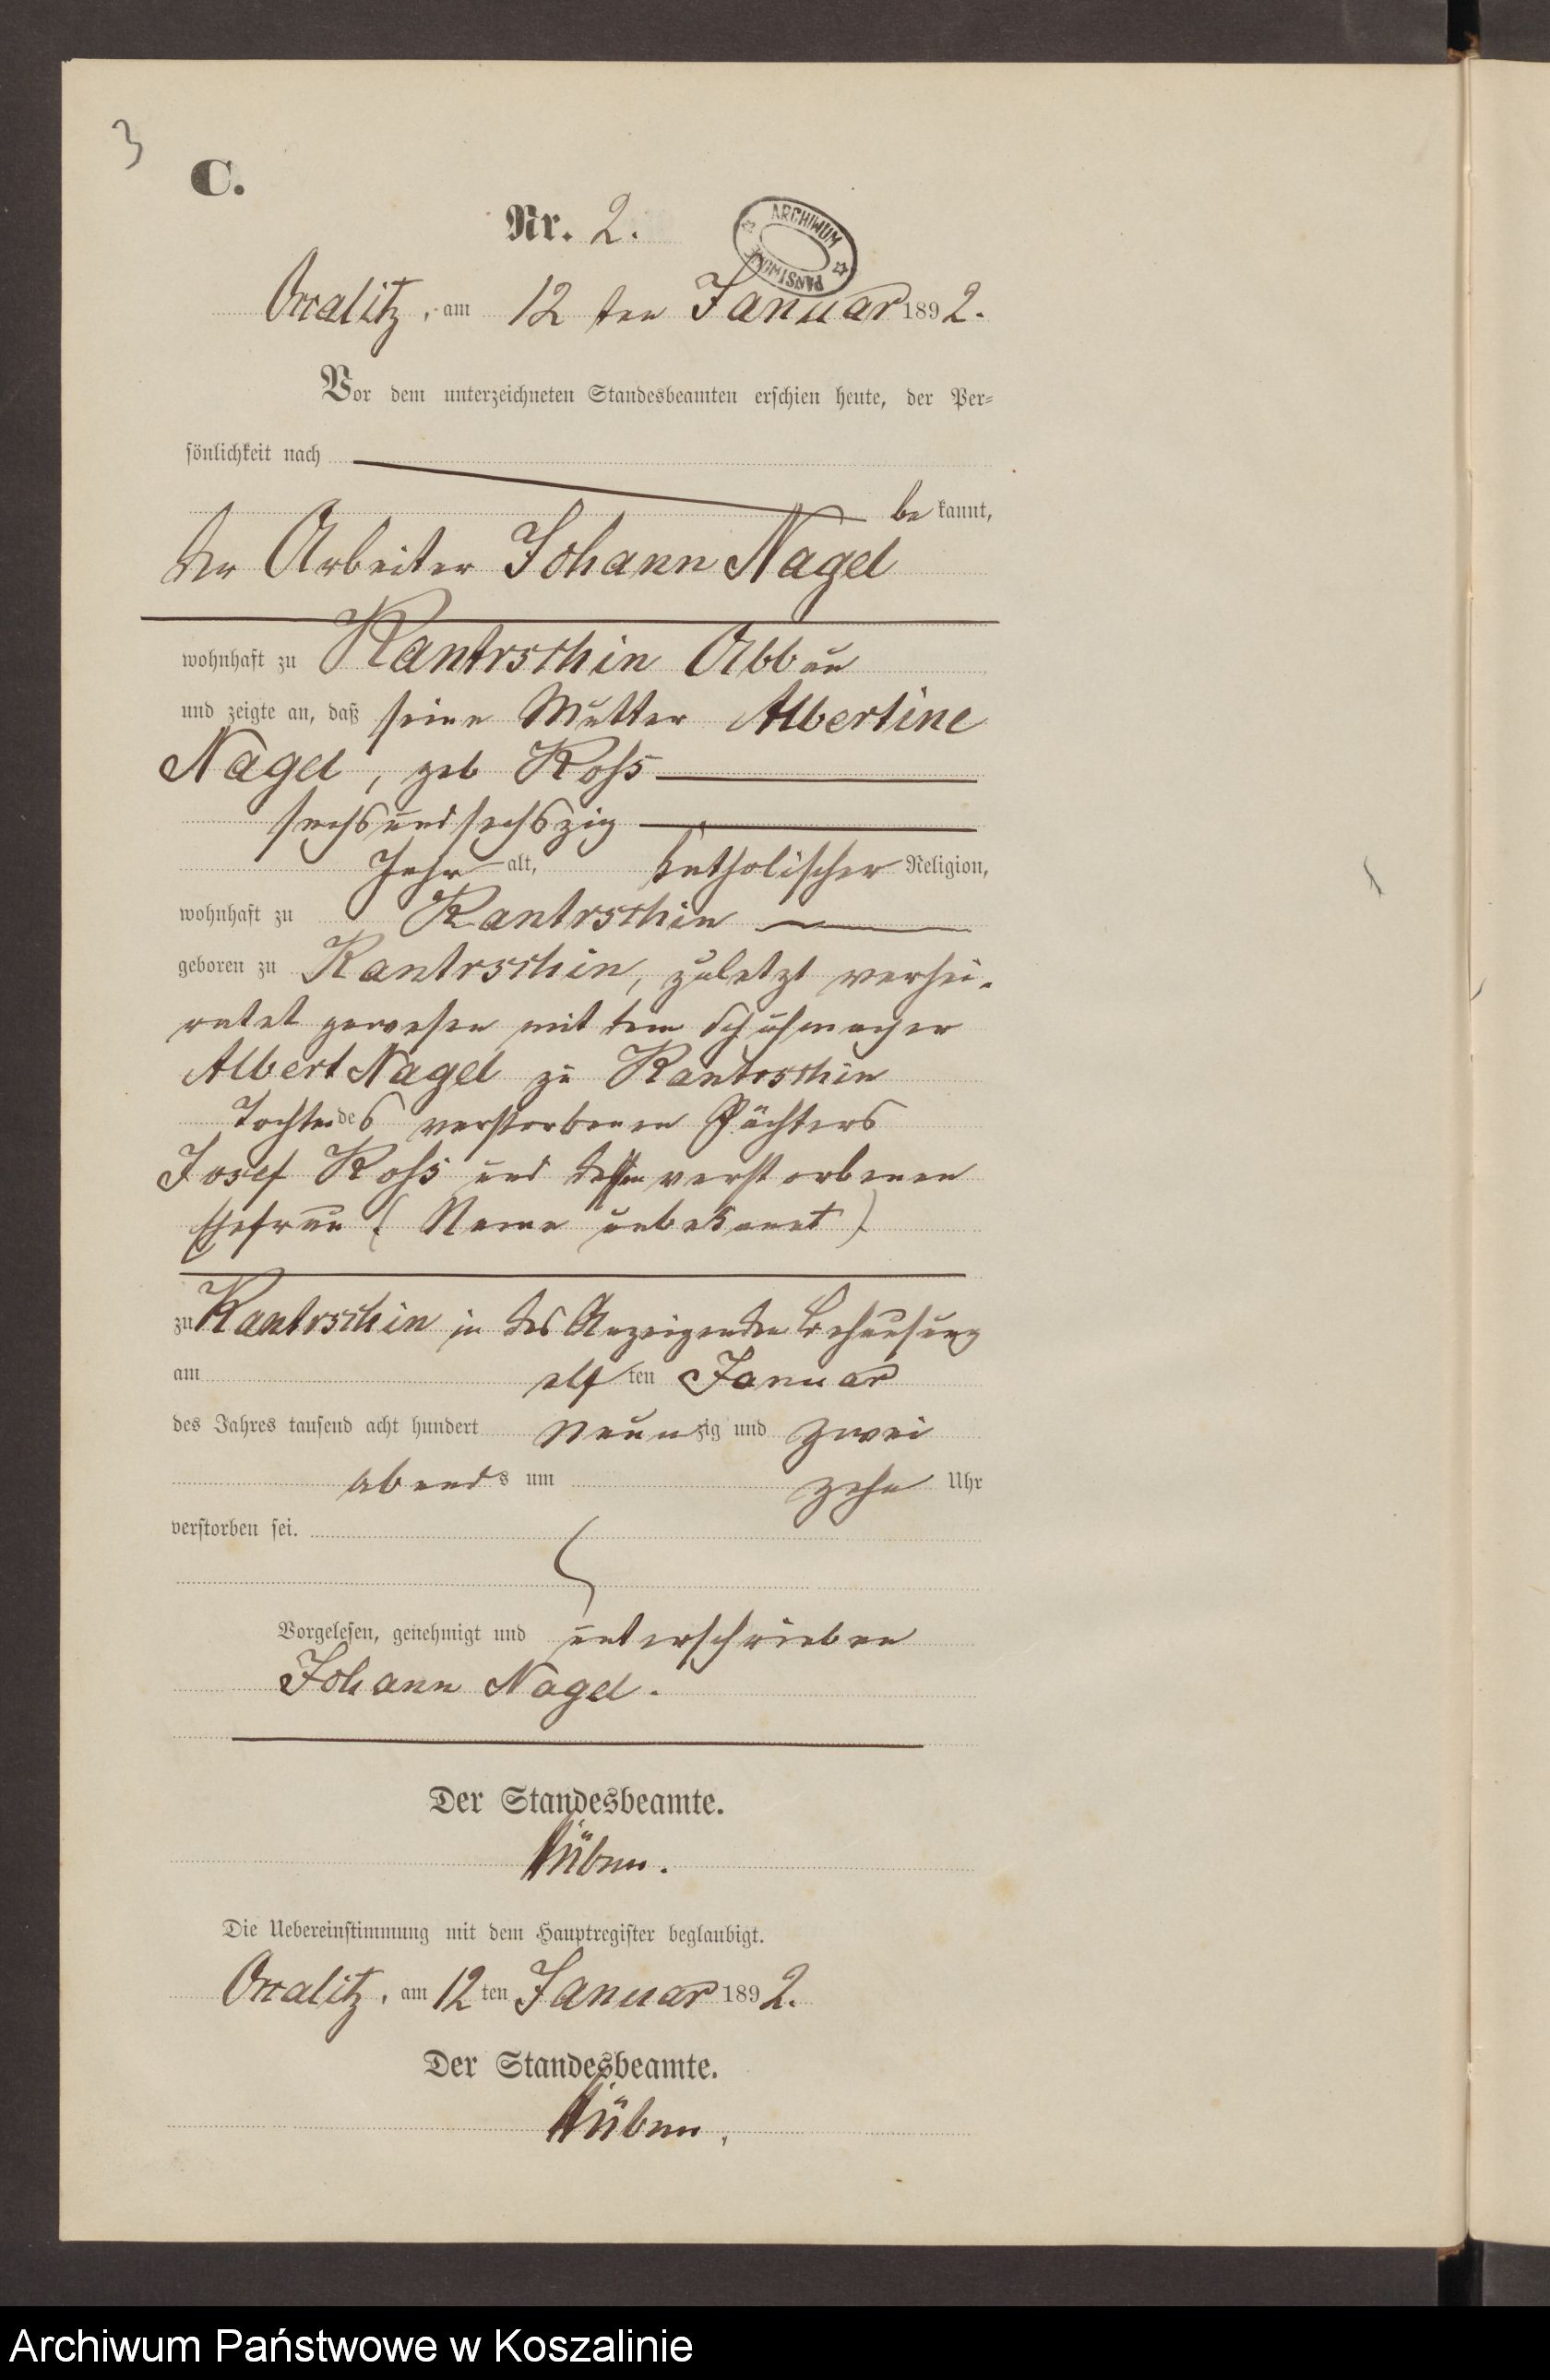 3
C.
Nr. 2.
ARCHIWUM PAŃSTWOWE
Occalitz, am 12 ten Januar 1892.
Vor dem unterzeichneten Standesbeamten erschien heute, der Per-
sönlichkeit nach
bekannt,
der Arbeiter Johann Nagel
wohnhaft zu Kantrschin Abbau
und zeigte an, daß seine Mutter Albertine
Nagel, geb Roß
sechsundsechszig
Jahr alt, katholischer Religion,
wohnhaft zu Kantrschin
geboren zu Kantrschin, zuletzt verhei-
ratet gewesen mit dem Schuhmacher
Albert Nagel zu Kantrschin
Tochter des verstorbenen Pächters
Josef Roß und dessen verstorbenen
Ehefrau (Name unbekannt)
zu Kantrschin in des Anzeigenden Behausung
am elf ten Januar
des Jahres tausend acht hundert Neunzig und zwei
abends um zehn Uhr
verstorben sei.
Vorgelesen, genehmigt und unterschrieben
Johann Nagel.
Der Standesbeamte.
Die Uebereinstimmung mit dem Hauptregister beglaubigt.
Occalitz, am 12 ten Januar 1892.
Der Standesbeamte.
Archiwum Państwowe w Koszalinie